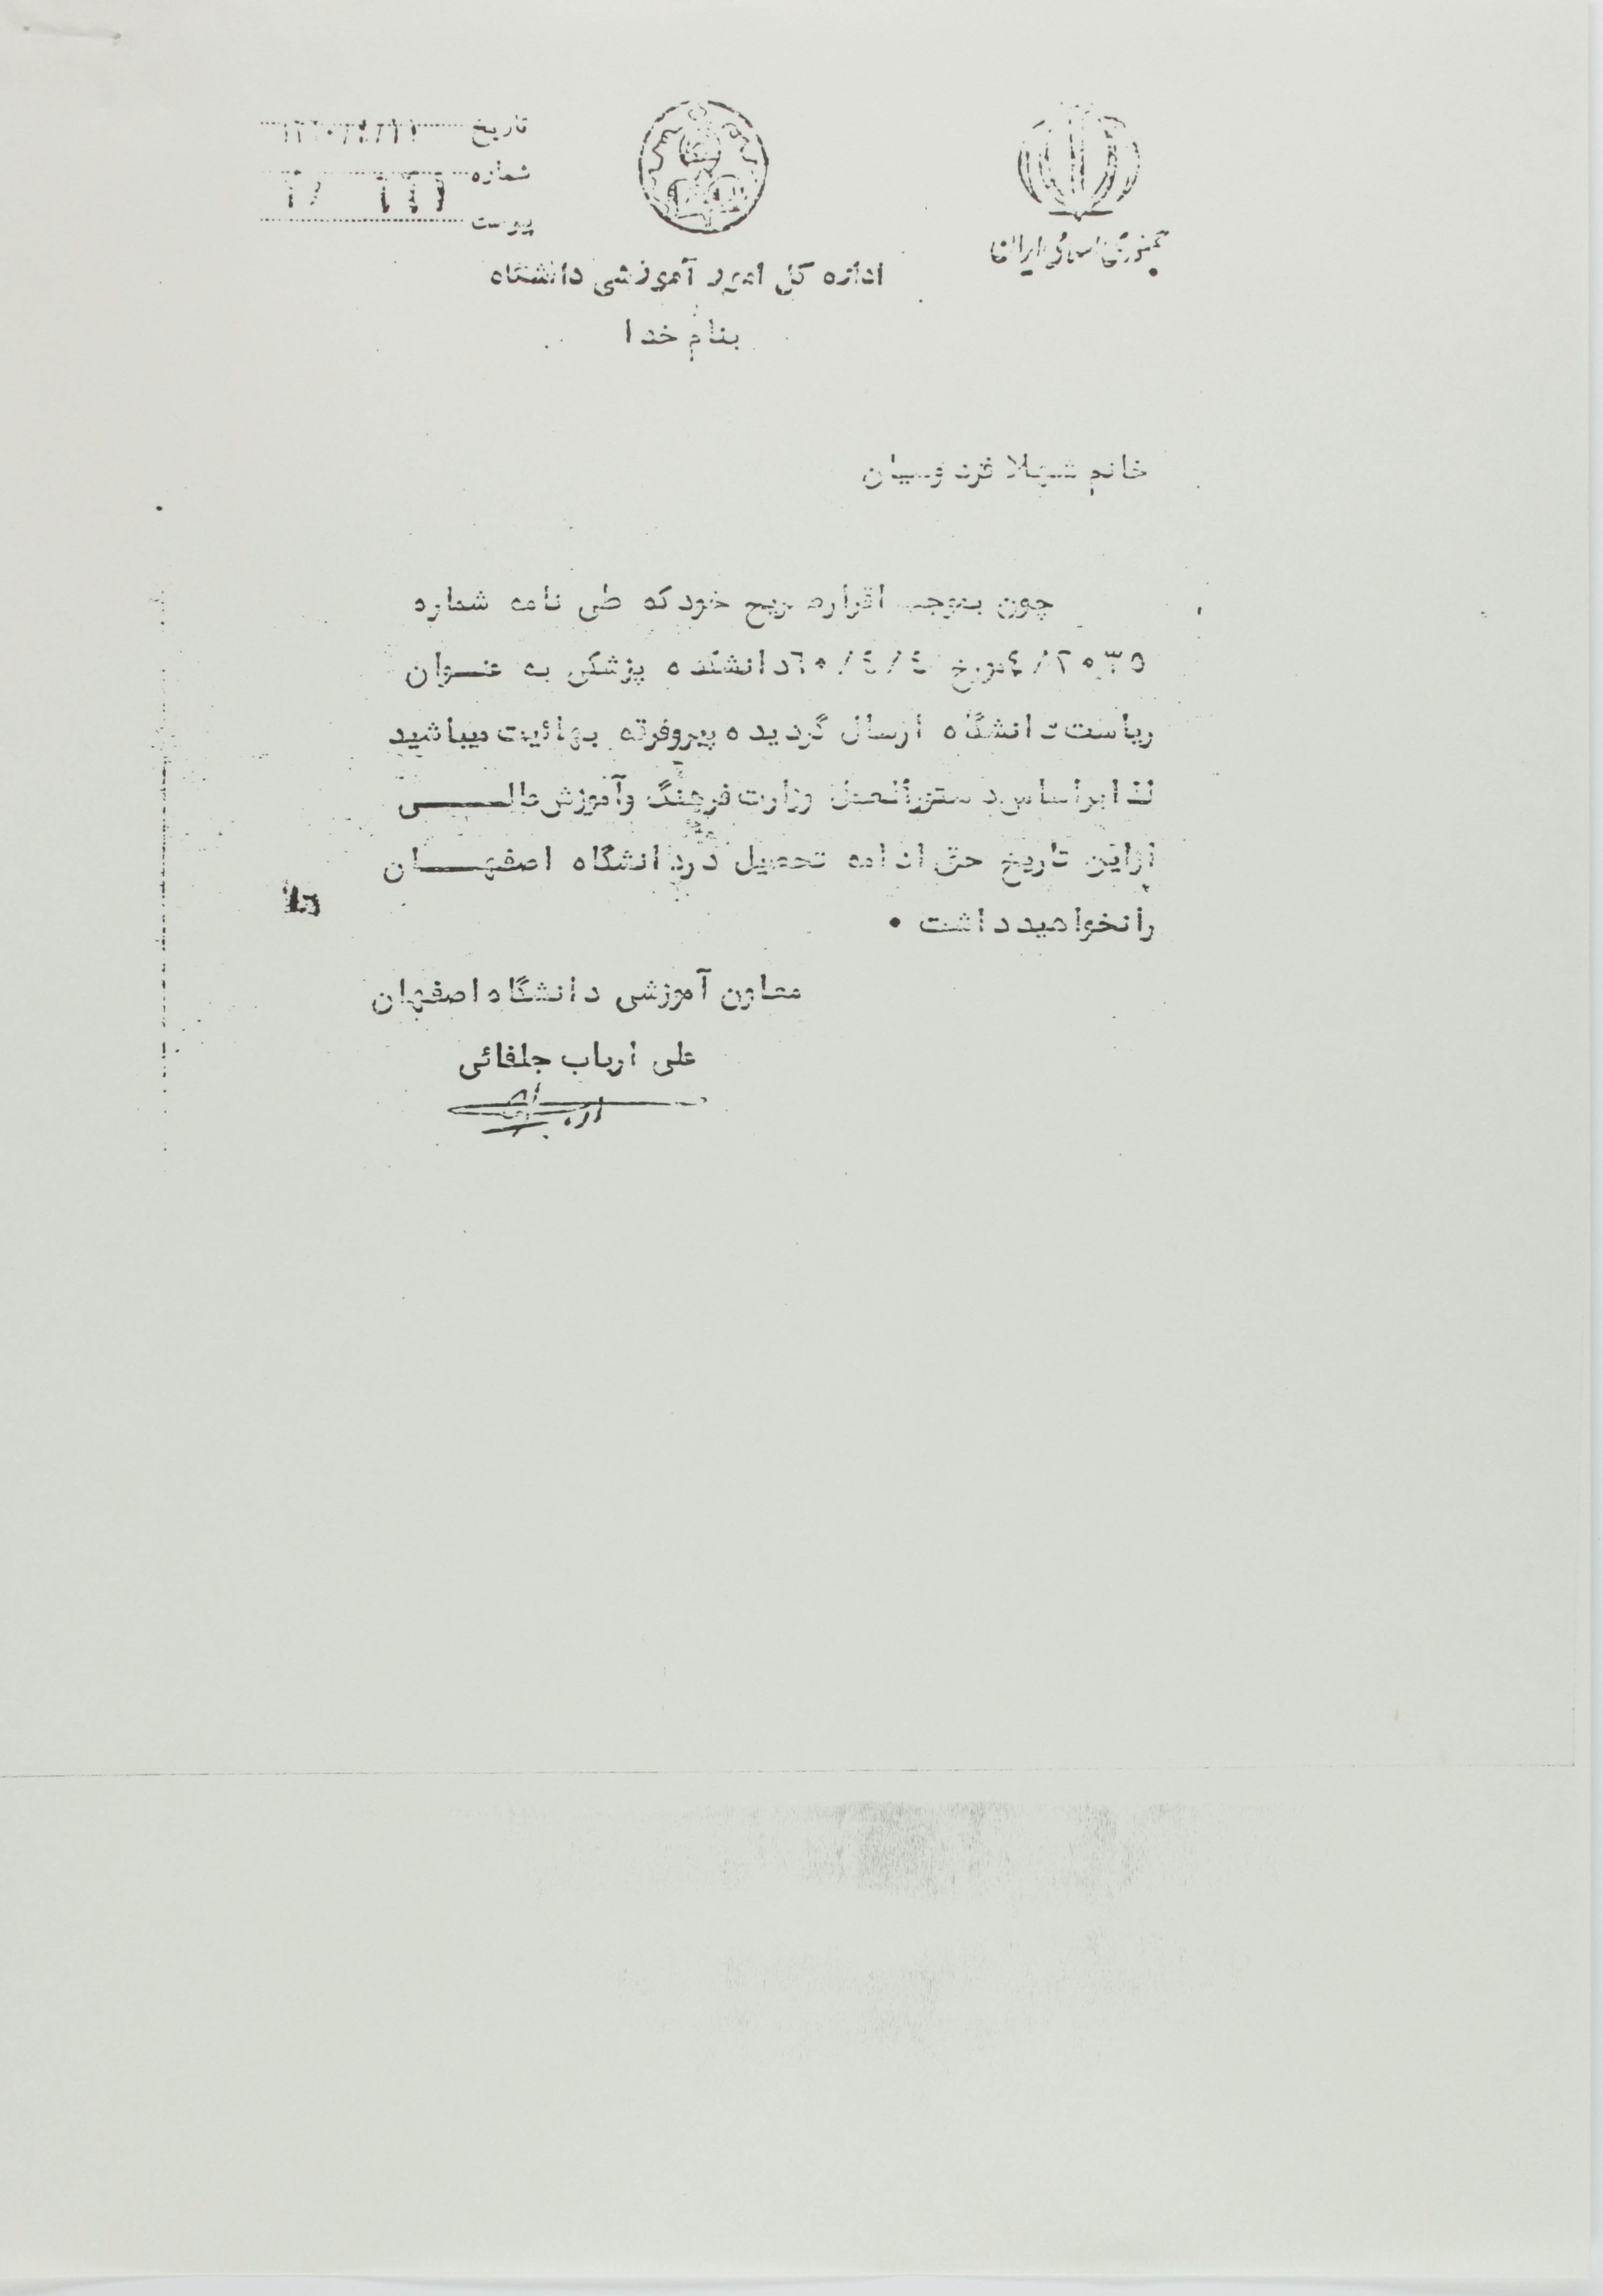 جمهوری اسلامی ایران
تاریخ
شماره
پیوست
اداره کل امور آموزشی دانشگاه
بنام خدا
خانم شهلا فردوسیان
چون بموجب اقرار صریح خود که طی نامه شماره
مورخ ٦٠/٤/٤ دانشکده پزشکی به عنـوان
ریاست دانشگاه ارسال گردیده پیروفرقه بهائیت میباشید
لذا براساس دستورالعمل وزارت فرهنگ وآموزش عالـــی
ازاین تاریخ حق ادامه تحصیل در دانشگاه اصفهـــان
را نخواهید داشت •
معاون آموزشی دانشگاه اصفهان
علی ارباب جلفائی